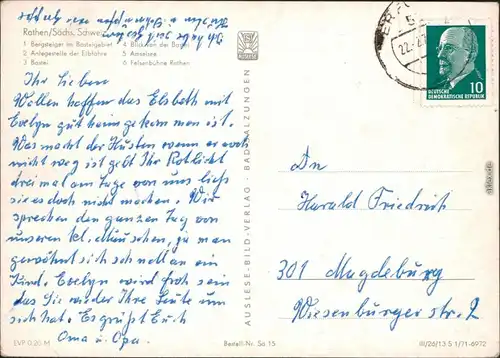 Rathen/Sächs. Schweiz
1 Bergsteiger im Basteigebiet
2 Anlegestelle der Elbfähre
3 Bastei
4 Blick von der Bastei
5 Amselsee
6 Felsenbühne Rathen
Ihr Lieben
Wollen hoffen das Elsbeth mit
Evelyn gut heim gekommen ist.
Was macht der Husten wenn er noch
nicht weg ist gebt Ihr Rotlicht
drei mal am Tage von uns ließ
sie es doch nicht machen. Wir
sprechen den ganzen Tag von
unseren kl. Mäuschen, ja man
gewöhnt sich schnell an ein
Kind. Evelyn wird froh sein
das Sie wieder Ihre Leute um
sich hat. Es grüßt Euch
Oma u. Opa.
EVP 0,20 M
Bestell-Nr. Sa 15
AUSLESE-BILD-VERLAG · BAD SALZUNGEN
ERFU
22.-2
DEUTSCHE
DEMOKRATISCHE REPUBLIK
10
An
Harald Friedreit
301 Magdeburg
Wiesenburger str. 2
III/26/13 S 1/71-6972